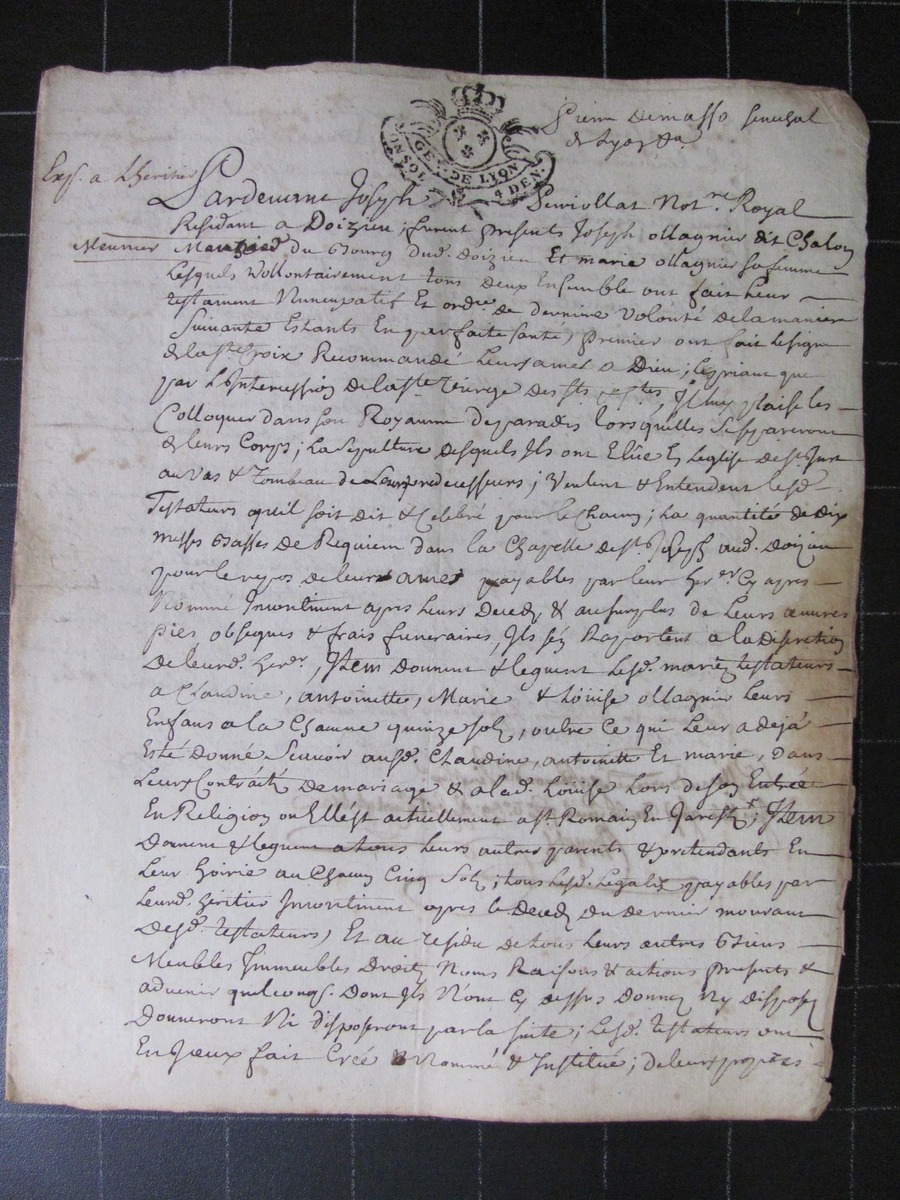 Pierre Demasso senechal
de Lyon
GE. DE LYON
UN SOL 4 DEN.
Exp. a Lheritier
Pardevant Joseph Perriollat Not.re Royal
Residant a Doizieu, furent presents Joseph ollagnier dit Chalon
Meunier
du Bourg dud. Doizieu Et marie ollagnier sa femme
Lesquels Vollontairement tous deux Ensemble ont fait leur
testament Nuncupatif Et ordre de derniere Volonté de la maniere
Suivante Estants En parfaite santé, premier ont fait le signe
de la ste Croix Recommandé Leurs ames a Dieu; le priant que
par L'Intercession de la ste Vierge des sts Il luy plaise les
Colloquer dans son Royaume de paradis lorsqu'elles Se sépareront
de leurs Corps; La Sepulture desquels Ils ont Elüe En Leglise de st Just
au Vas & Tombeau de Leurs predecesseurs; Veulent & Entendent lesd.
Testateurs qu'il soit dit & Celebré pour le Chacun; La quantité de dix
messes Basses de Requiem dans la Chapelle de st. Joseph aud. Doizieu
pour le repos de leurs ames payables par leur her.er Cy apres
Nommé Incontinent apres leurs Deced & au surplus de Leurs œuvres
pies, obseques & frais funeraires, Ils s'en Raportent a la Discretion
de leurd. her.er, Item Donnent & leguent lesd. mariez testateurs
a Claudine, antoinette, Marie & Loüise ollagnier Leurs
Enfans a la Chacune quinze solz, outre Ce qui Leur a dejà
Esté donné Scavoir ausd. Claudine, antoinette Et marie, dans
Leurs Contrats de mariage & a lad. Loüise Lors de son Entrée
En Religion ou Ell'est actuellement a st. Romain En Jarest; Item
Donnent & leguent a tous leurs autres parents & pretendants En
Leur hoirie au Chacun Cinq Solz; tous lesd. Legats payables par
Leurd. heritier Incontinent apres le Deced du dernier mourant
Desd. testateurs, Et au residu de tous leurs autres Biens
Meubles Immeubles Droits Noms Raisons & actions presents &
advenir quelconqs. Dont Ils N'ont Cy dessus donné Ny disposé
Donneront Ni disposeront par la suitte; Lesd. testateurs ont
En Iceux fait Créé Nommé & Institué; de leurs propres